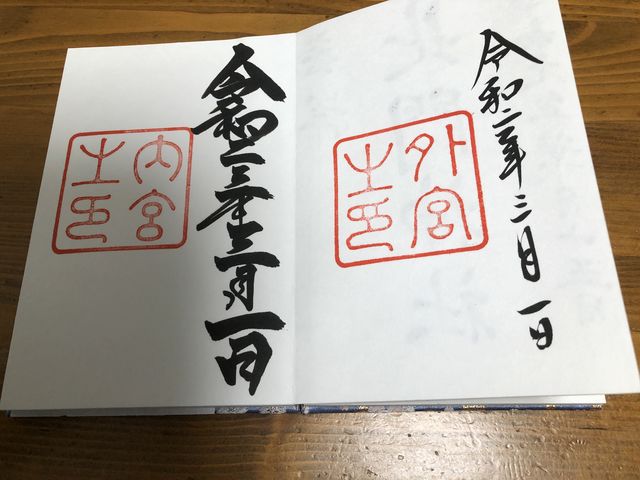 令和二年三月一日
外宮
之印
令和二年三月一日
内宮
之印